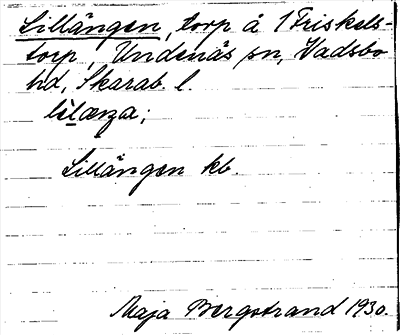 Lillängen, torp å 1 Friskels-
torp, Undenäs sn, Vadsbo
hd, Skarab. l.
lìlæŋa;
Lillängen kb.
Maja Bergstrand 1930.